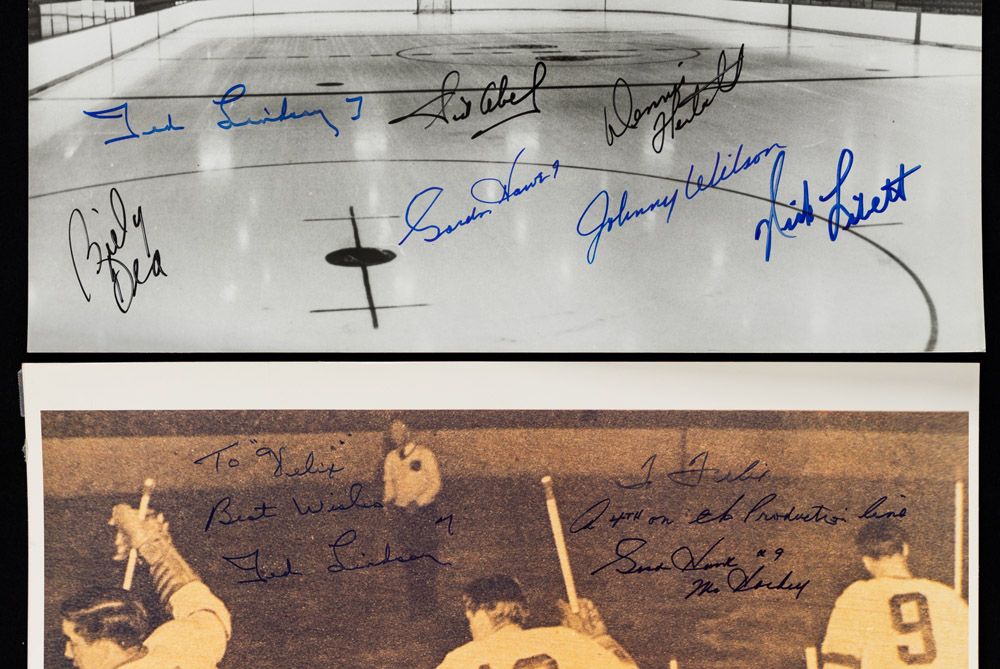 Ted Lindsay 7
Sid Abel
Dennis
Hextall
Billy
Dea
Gordie Howe 9
Johnny Wilson
Nick Libett
To "Felix"
Best Wishes
Ted Lindsay
To Felix
on the Production line
Gordie Howe #9
Mr Hockey
9